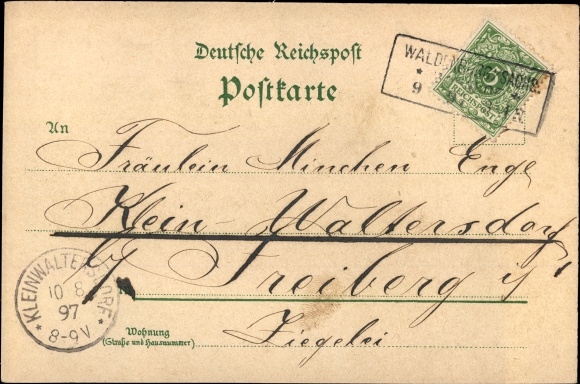 Deutsche Reichspost
Postkarte
WALDENBURG SACHS.
* 9
5
REICHSPOST
An
Fräulein Minchen Enge
Klein-Waltersdorf
Freiberg i/
Ziegelei
Wohnung
(Straße und Hausnummer)
* KLEINWALTERSDORF *
10 8
97
8-9V